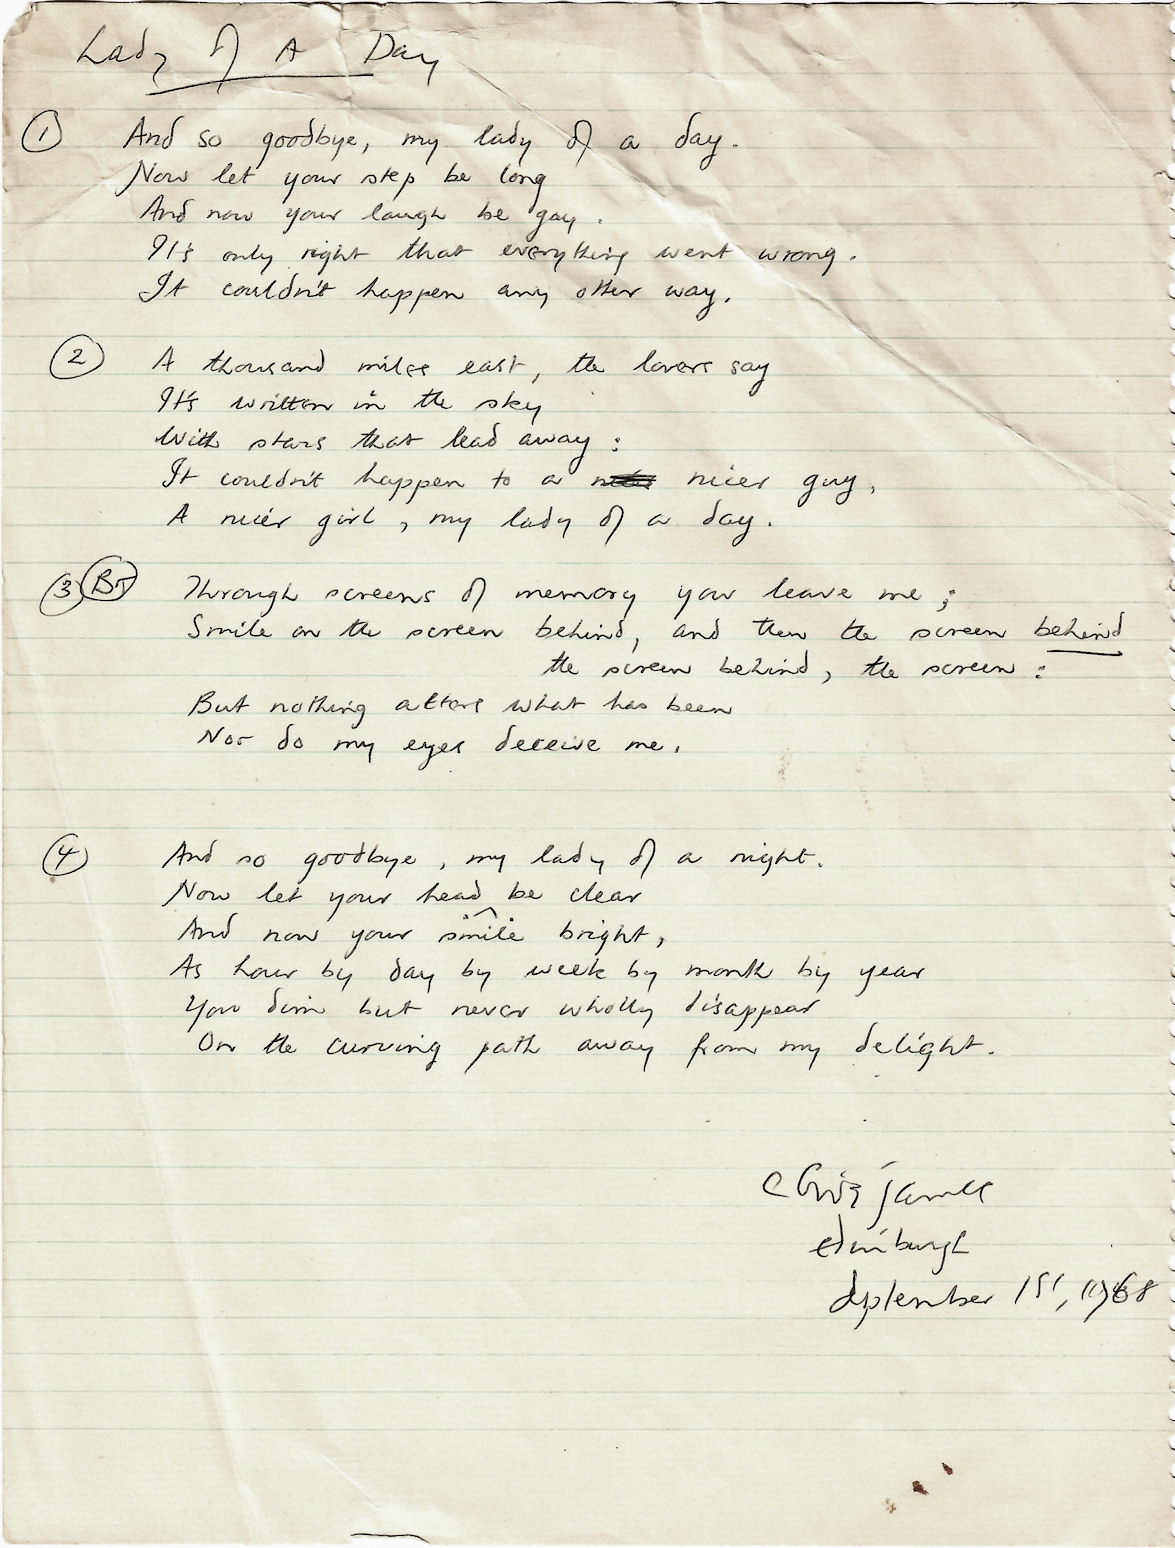 Lady Of A Day
1 And so goodbye, my lady of a day.
Now let your step be long
And now your laugh be gay.
It's only right that everything went wrong.
It couldn't happen any other way.
2 A thousand miles east, the lovers say
It's written in the sky
With stars that lead away:
It couldn't happen to a nicer guy,
A nicer girl, my lady of a day.
3 Br Through screens of memory you leave me;
Smile on the screen behind, and then the screen behind
the screen behind, the screen:
But nothing alters what has been
Nor do my eyes deceive me.
4 And so goodbye, my lady of a night.
Now let your head be clear
And now your smile bright,
As hour by day by week by month by year
You dim but never wholly disappear
On the curving path away from my delight.
Clive James
Edinburgh
September 1st, 1968